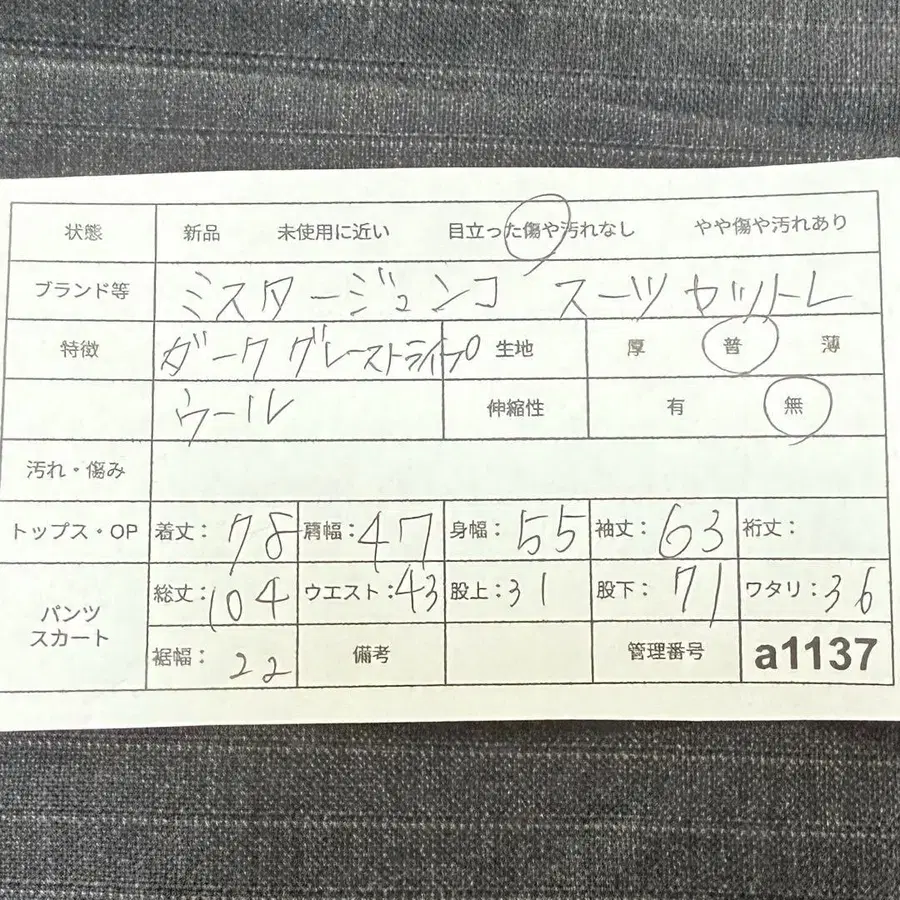 状態 新品 未使用に近い 目立った傷や汚れなし やや傷や汚れあり
ブランド等 ミスタージュンコ スーツ セットレ
特徴 ダークグレーストライプ 生地 厚 普 薄
ウール 伸縮性 有 無
汚れ・傷み
トップス・OP 着丈: 78 肩幅: 47 身幅: 55 袖丈: 63 裄丈:
パンツ スカート 総丈: 104 ウエスト: 43 股上: 31 股下: 71 ワタリ: 36
裾幅: 22 備考 管理番号 a1137